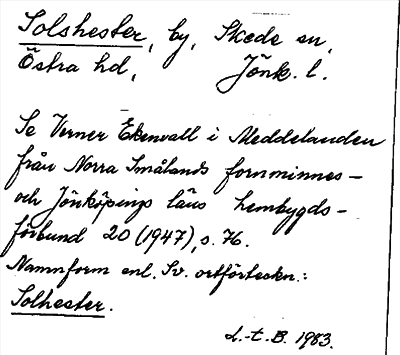 Solshester, by, Skede sn,
Östra hd, Jönk. l.
Se Verner Ekenvall i Meddelanden
från Norra Smålands fornminnes-
och Jönköpings läns hembygds-
förbund 20 (1947), s. 76.
Namnform enl. Sv. ortförteckn.:
Solhester.
L.-t. B. 1983.